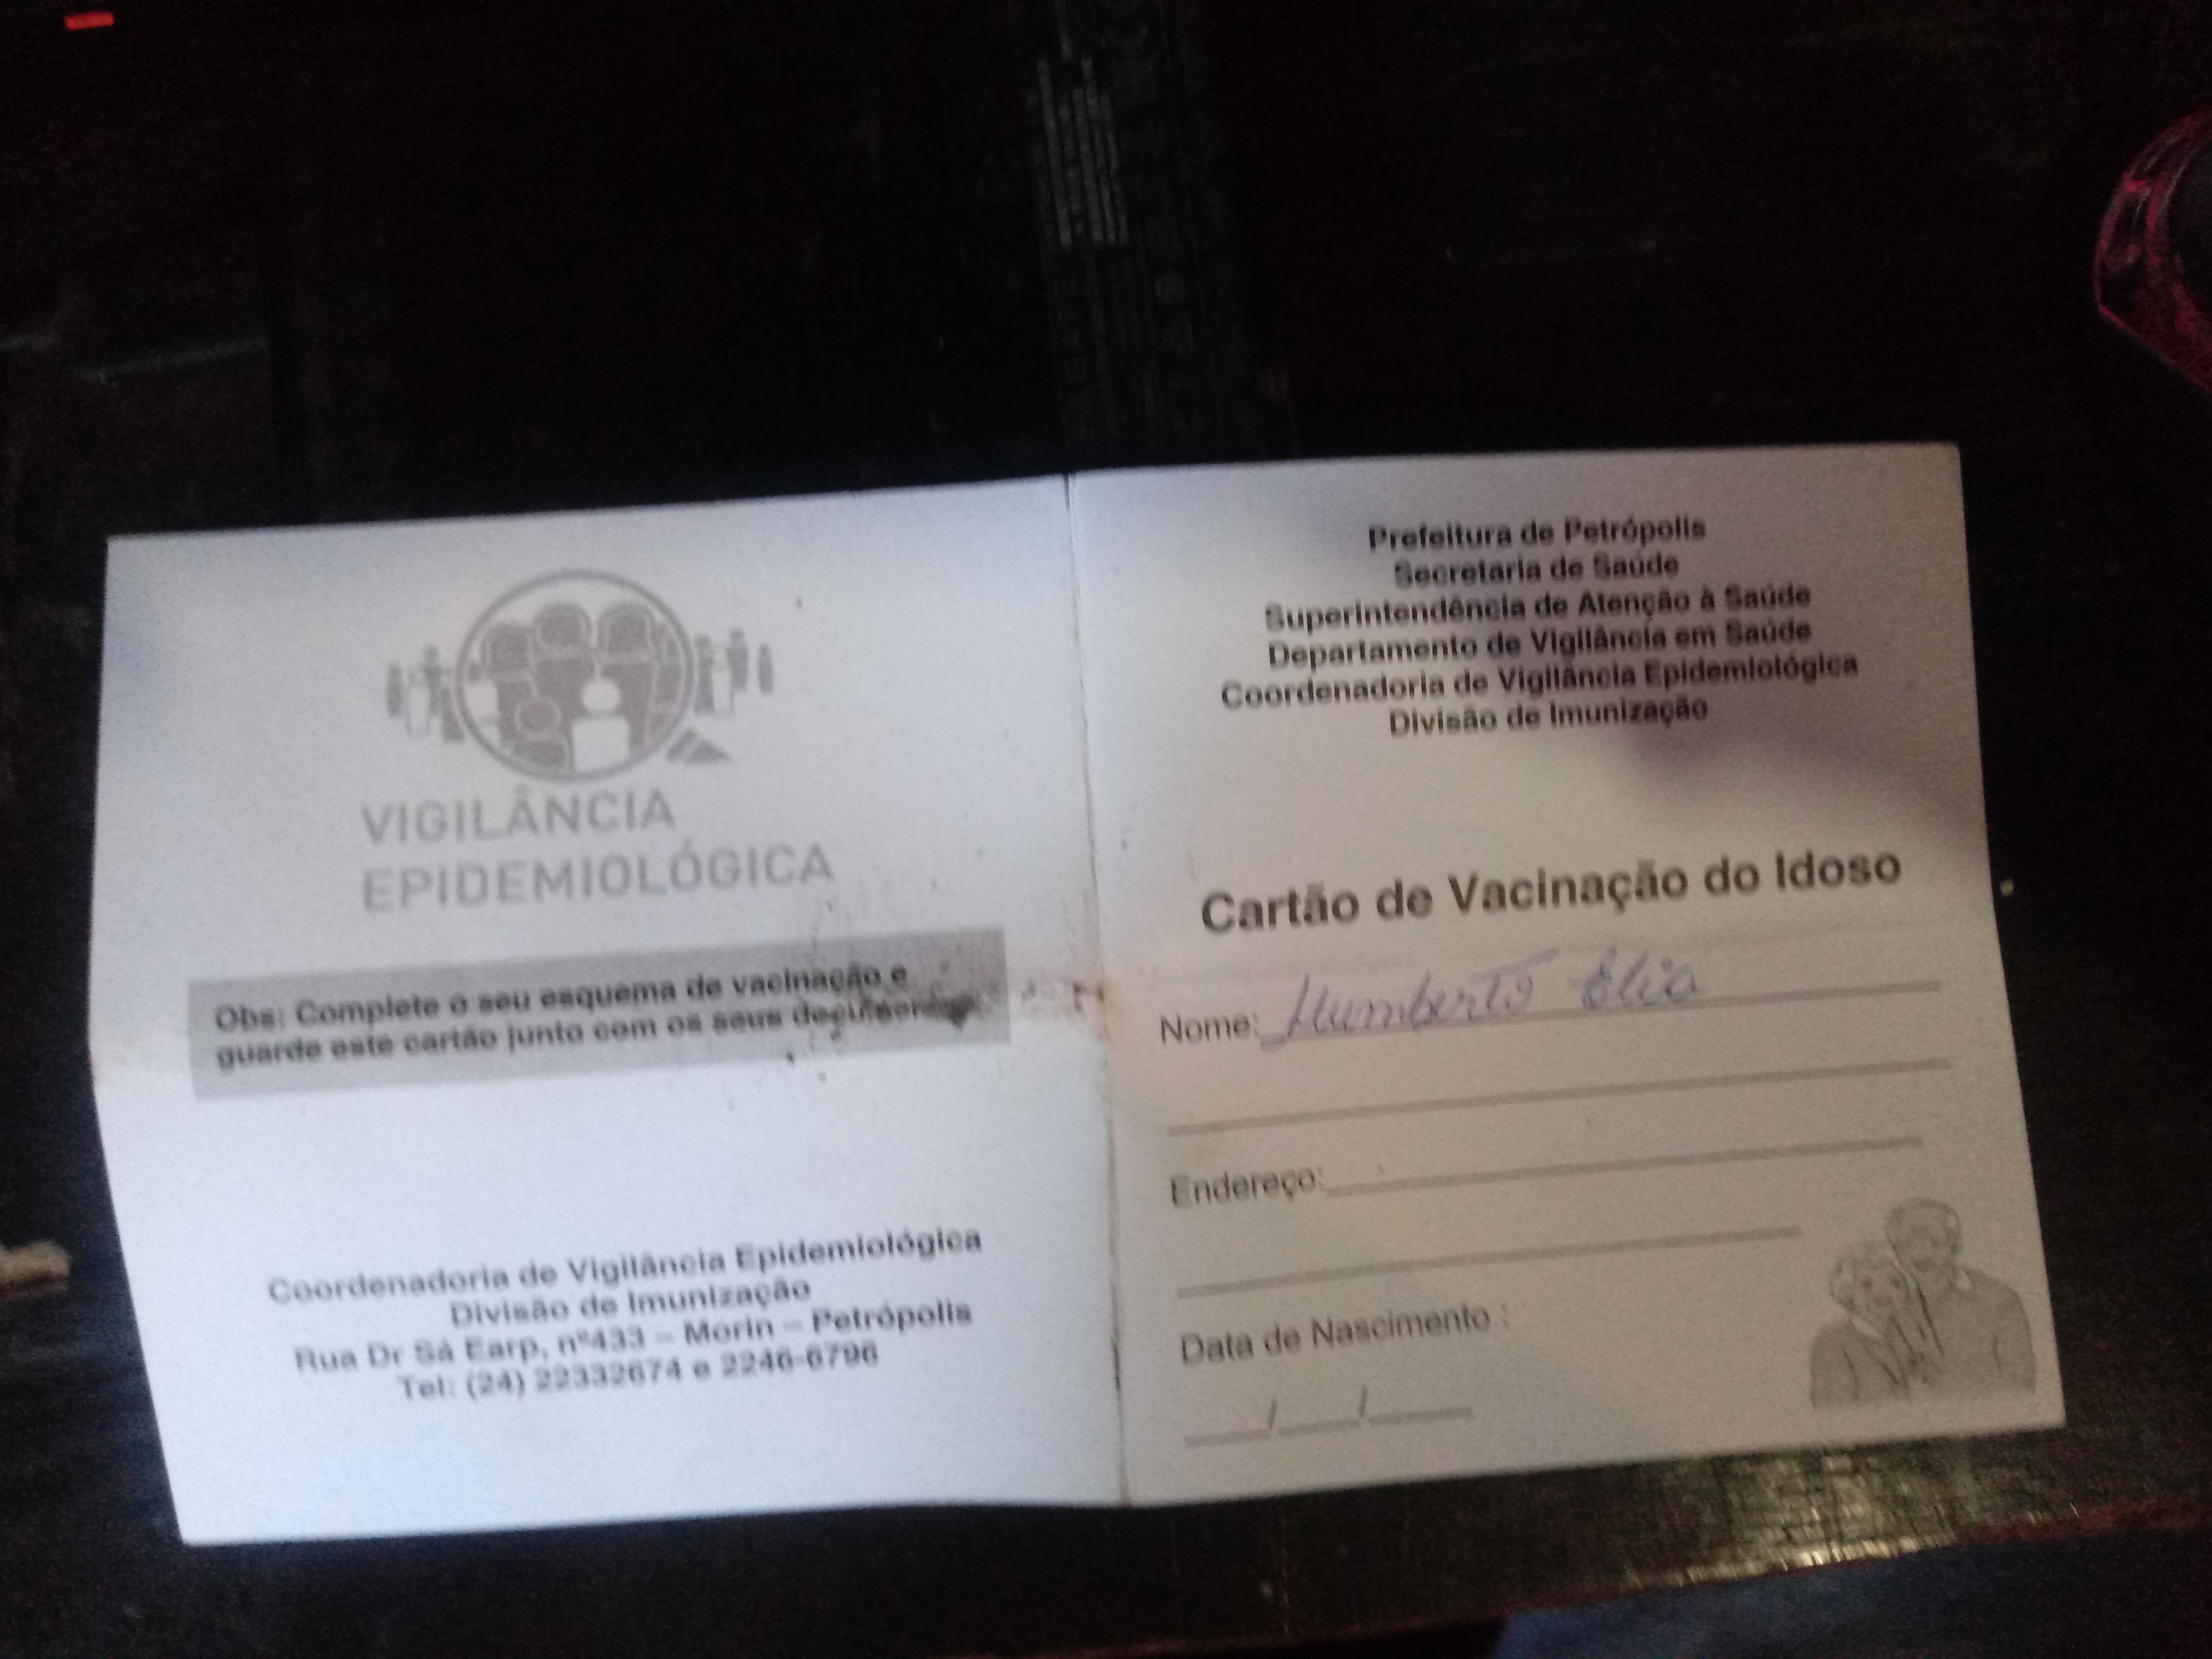 VIGILÂNCIA
EPIDEMIOLÓGICA
Obs: Complete o seu esquema de vacinação e
guarde este cartão junto com os seus
Coordenadoria de Vigilância Epidemiológica
Divisão de Imunização
Rua Dr Sá Earp, nº433 – Morin – Petrópolis
Tel: (24) 22332674 e 2246-6796
Prefeitura de Petrópolis
Secretaria de Saúde
Superintendência de Atenção à Saúde
Departamento de Vigilância em Saúde
Coordenadoria de Vigilância Epidemiológica
Divisão de Imunização
Cartão de Vacinação do Idoso
Nome: Humberto Elia
Endereço:
Data de Nascimento :
____/____/____